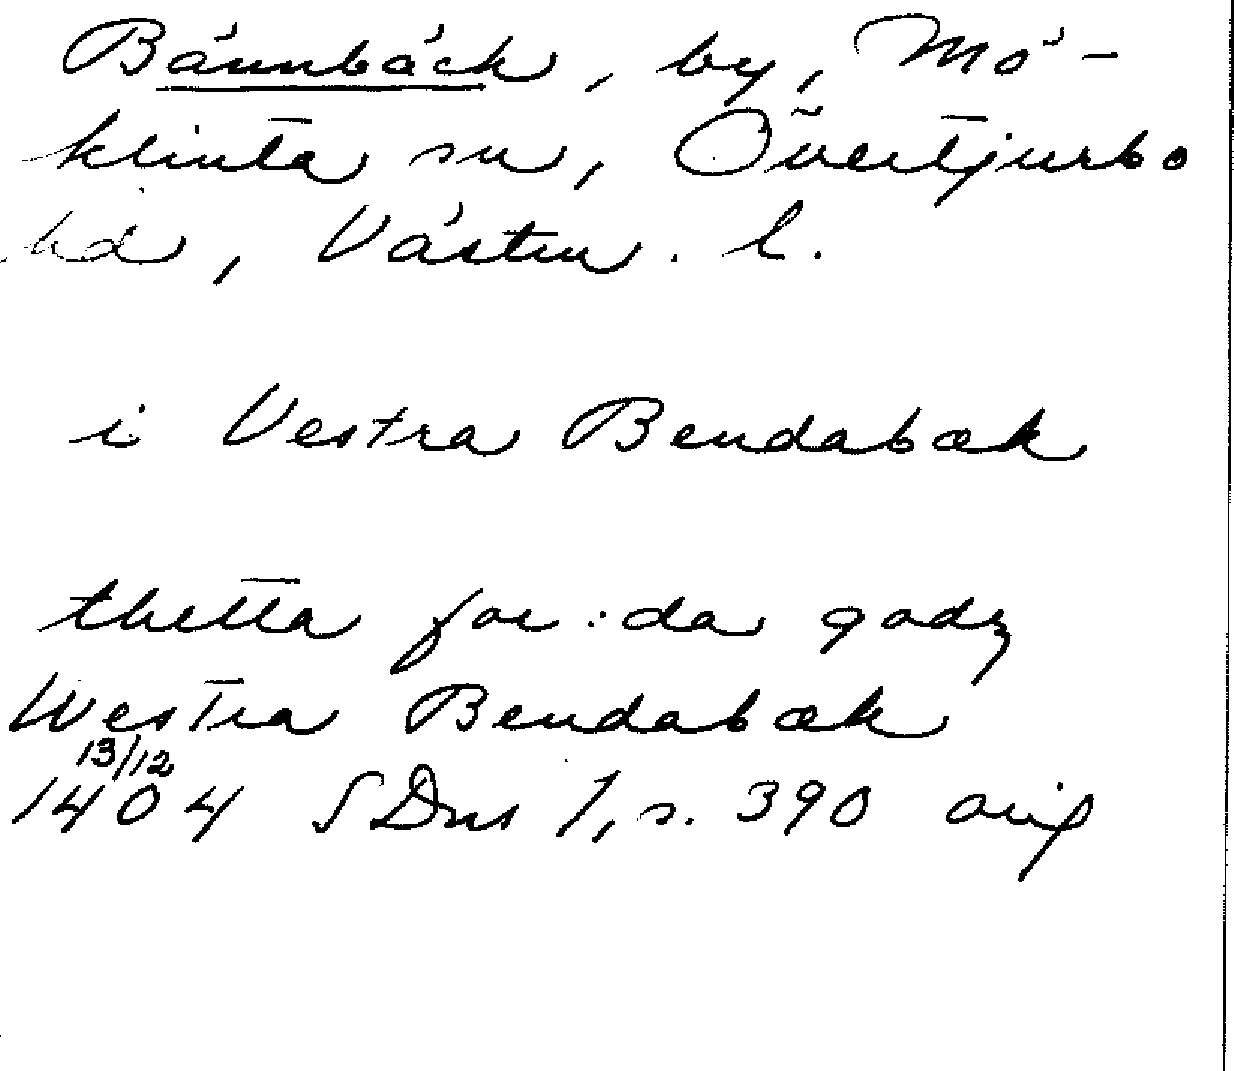 Bännbäck, by, Mö-
klinta sn, Övertjurbo
hd, Västm. l.
i Vestra Bendabæk
thetta for:da godz
Westra Bendabæk
13/12
1404 SDns 1, s. 390 orig